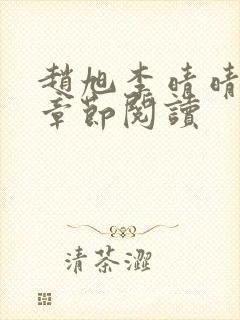 趙旭李晴晴
章節閱讀
清茶澀